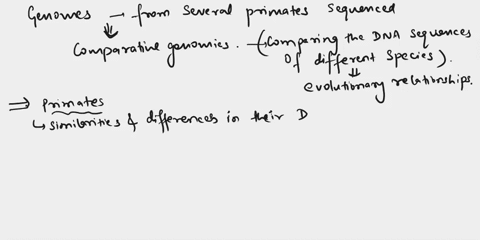 Genomes → from several primates sequenced
⇓
Comparative genomics. → (Comparing the DNA sequences
Of different species).
⇓
evolutionary relationships.
⇒ Primates
↳ similarities & differences in their D